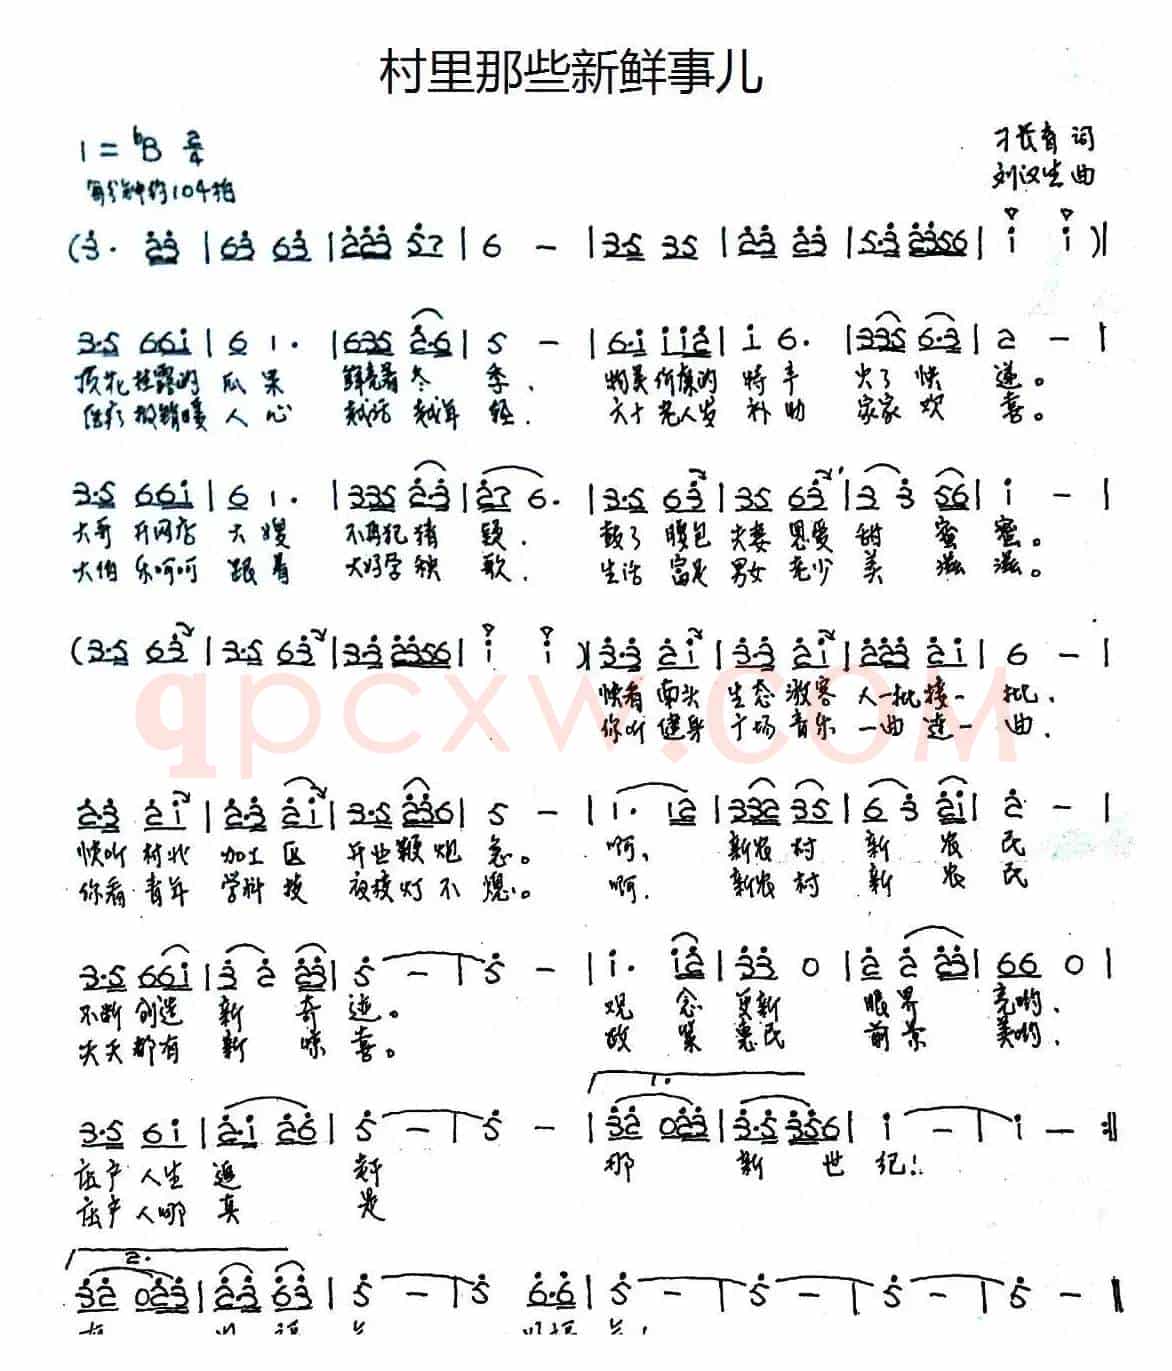 村里那些新鲜事儿
1=♭B 2/4
刁长育 词
每分钟约104拍
刘汉生 曲
(3· 23 | 63 63 | 223 57 | 6 - | 3·5 35 | 23 23 | 5·3 2356 | i i )|
3·5 66i | 6 1· | 635 2·6 | 5 - | 6·i ii2 | i 6· | 335 6·3 | 2 - |
顶花挂露的 瓜 果 鲜亮着 冬 季. 物美价廉的 特 丰 火了 快 递。
医疗报销暖 人 心 越活 越年 轻. 六十老人岁 补 助 家家 欢 喜。
3·5 66i | 6 1· | 335 2·3 | 27 6· | 3·5 63 | 35 63 | 3 3 56 | i - |
大哥 开网店 大 嫂 不再犯 猜 疑. 鼓了 腰包 夫妻 恩爱 甜 蜜 蜜。
大伯 乐呵呵 跟 着 大妈学 秧 歌. 生活 富足 男女 老少 美 滋 滋。
(3·5 63 | 3·5 63 | 3·3 2356 | i i )| 3·3 2i | 3·3 2i | 223 2i | 6 - |
快看 南头 生态 游客 人一批接一 批.
你听 健身 广场 音乐 一曲 连一 曲.
qpcxw.com
2·3 2i | 2·3 2i | 3·5 236 | 5 - | 1· i2 | 332 35 | 6 3 2i | 2 - |
快听 村北 加工 区 开业鞭 炮 急。 啊, 新农 村 新 农 民
你看 青年 学科 技 夜校灯 不 熄。 啊. 新农 村 新 农 民
3·5 66i | 3 2 23 | 5 - | 5 - | i· i2 | 33 0 | 2 2 23 | 66 0 |
不断 创造 新 奇 迹。 观 念 更新 眼 界 亮哟.
天天 都有 新 惊 喜。 政 策 惠民 前 景 美哟.
1.
3·5 6i | 2·i 26 | 5 - | 5 - | 32 023 | 3·5 3356 | i - | i - :||
庄户 人生 迎 来 那 新 世 纪!
庄户 人哪 真 是
2.
32 023 | 23 63 | 5 - | 5 6·6 | 5 - | 5 - | 5 - | 5 - ||